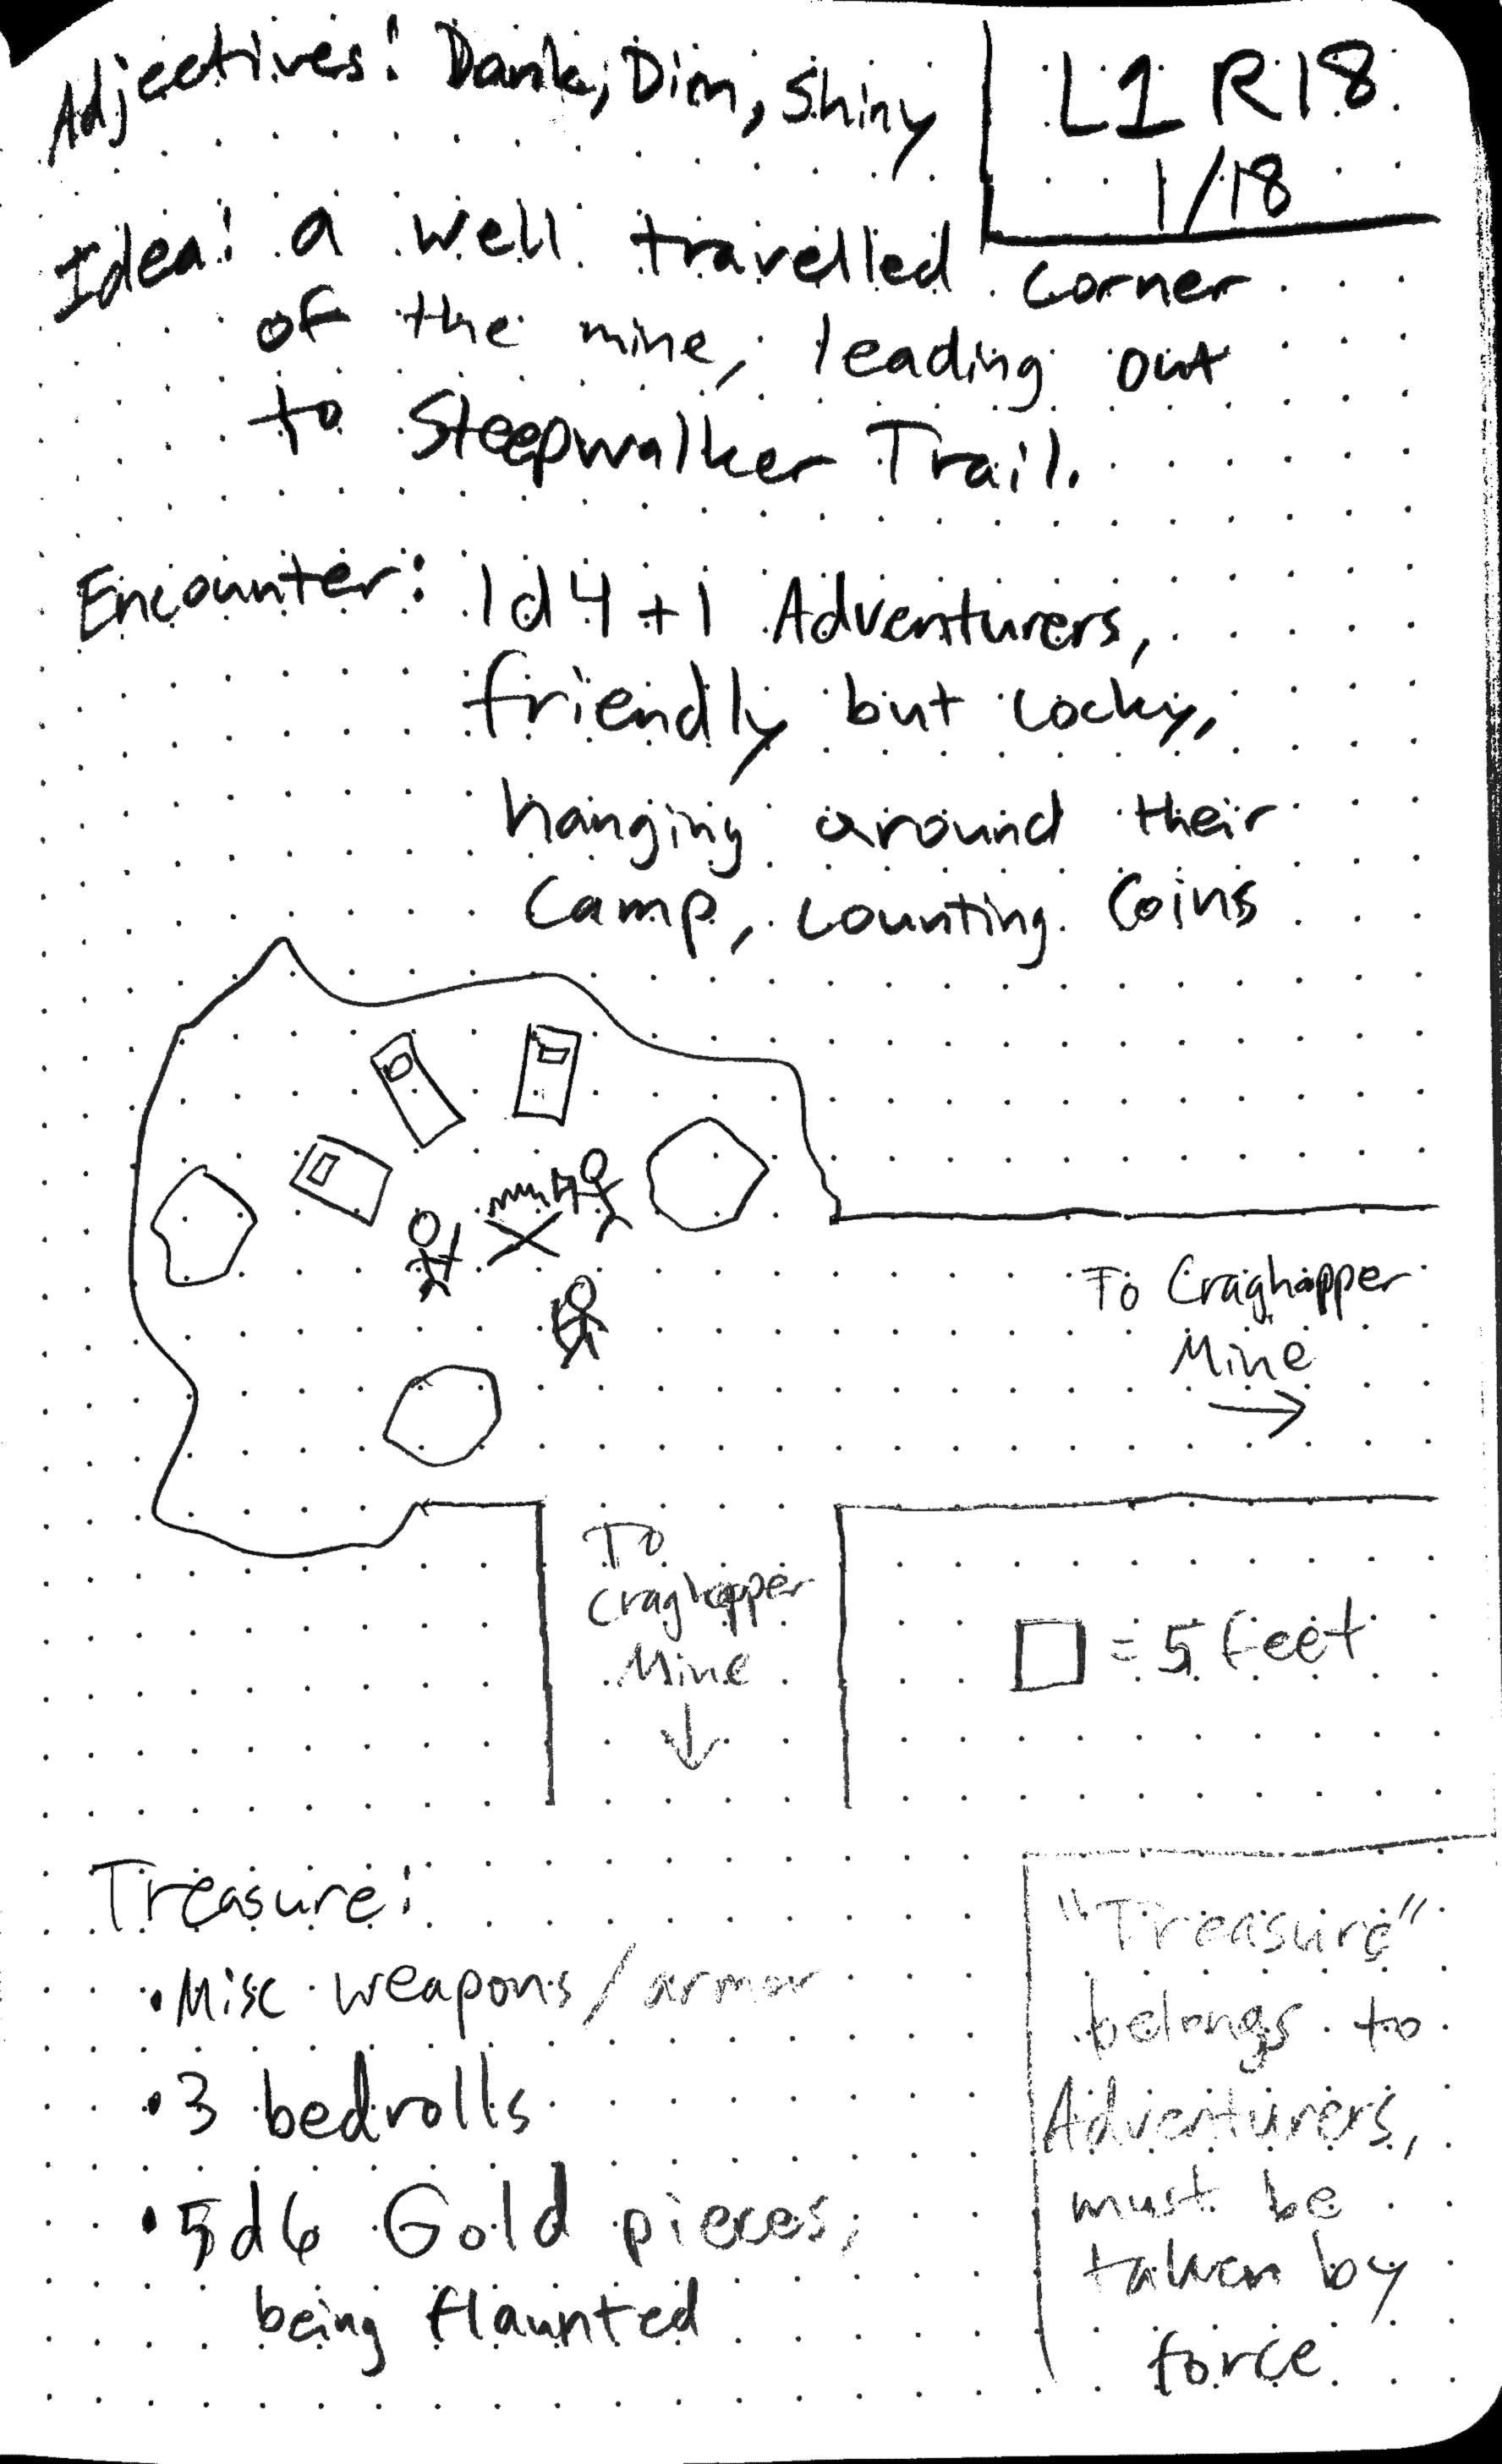 Adjectives: Dank, Dim, Shiny
L1 R18
1/18
Idea: a well travelled corner
of the mine, leading out
to Steepwalker Trail.
Encounter: 1d4+1 Adventurers,
friendly but cocky,
hanging around their
Camp, counting Coins
To Craghopper
Mine
To
Craghopper
Mine
= 5 feet
Treasure:
• Misc weapons/armor
• 3 bedrolls
• 5d6 Gold pieces,
being flaunted
"Treasure"
belongs to
Adventurers,
must be
taken by
force